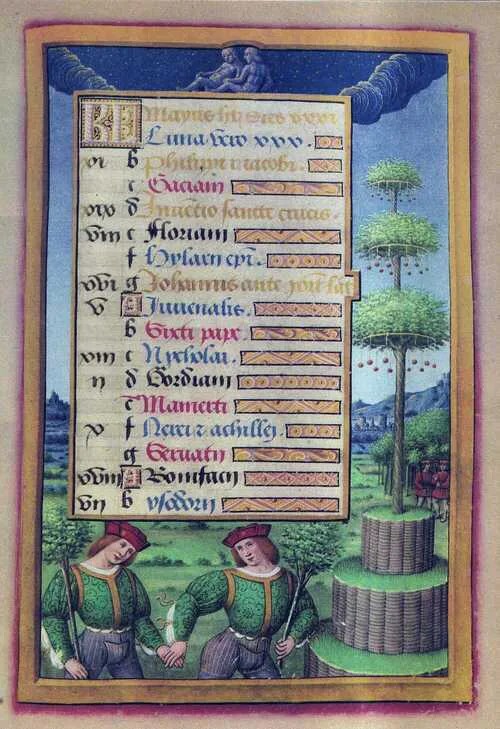 KL Mayus hīt Dies xxxi
Luna vero xxx.
xi b Philippi et iacobi.
c Gaciani
xix d Inventio sancte crucis.
viii e Floriani
f Hylarii epi.
xvi g Johannis ante port lat
v A Juvenalis.
b Sixti pape
xiii c Nycholai.
ii d Gordiani
e Mamerti
x f Nerei z achillei.
g Servatii
xviii A Bonifacii
vii b ysodorii